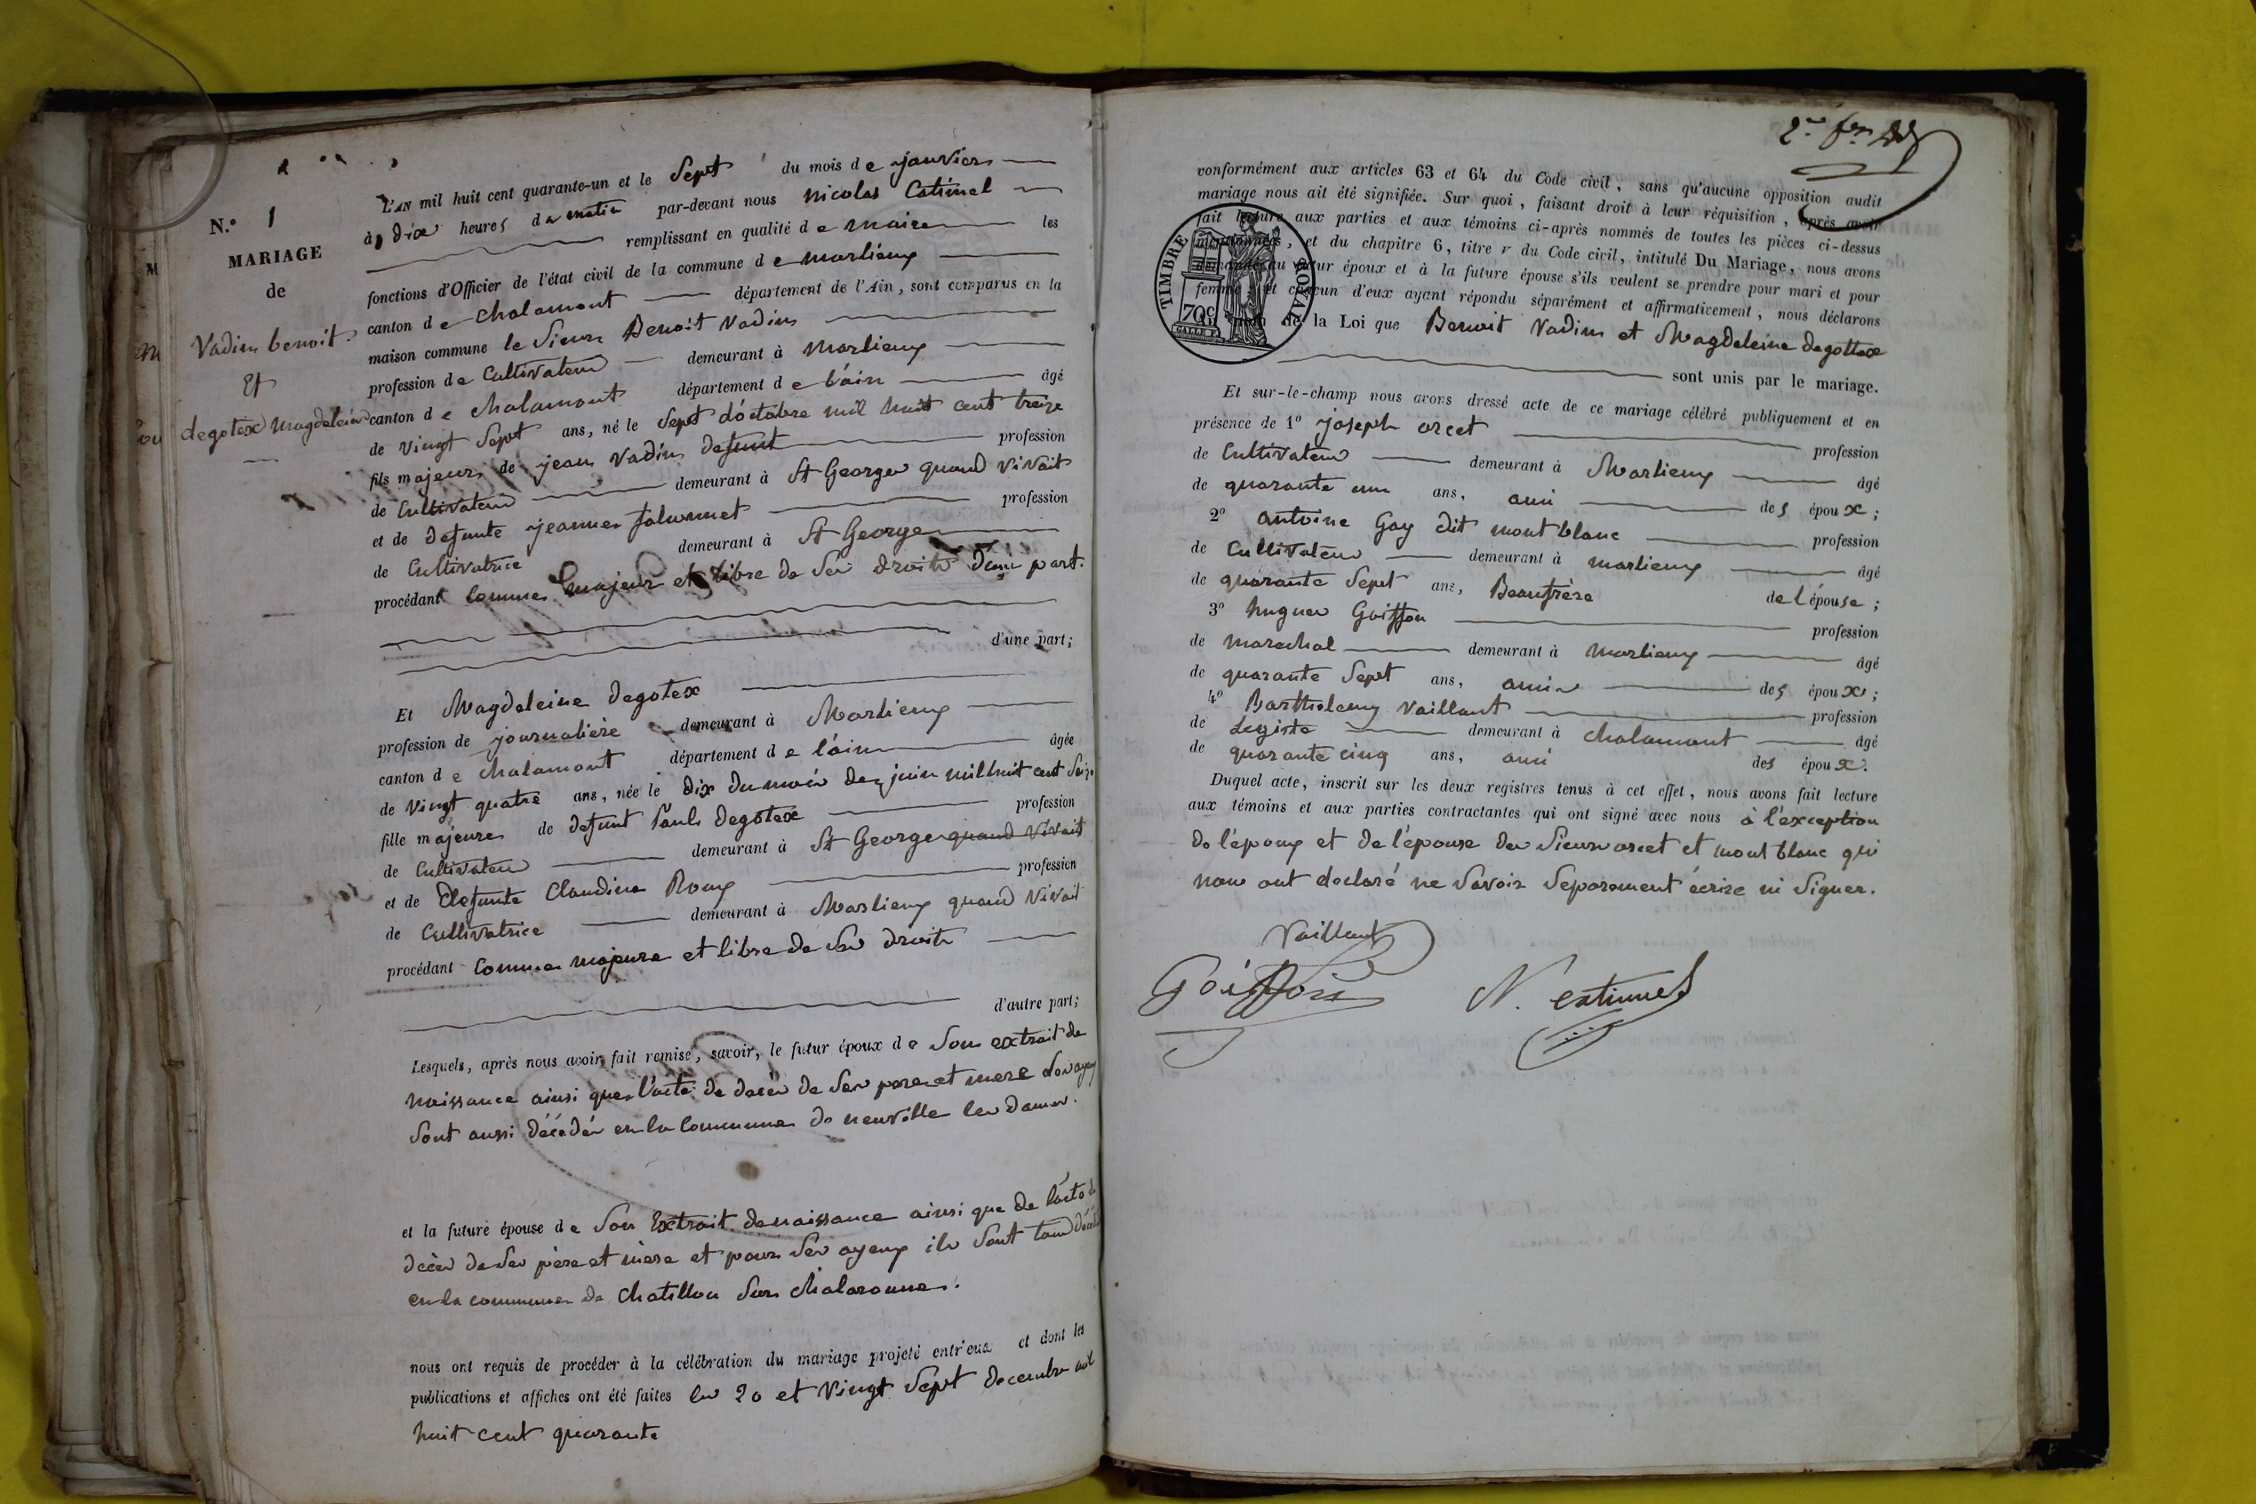 N.º 1
MARIAGE
de
Vadin benoit
Et
degotex magdeleine
L'AN mil huit cent quarante-un et le Sept du mois de janvier
à dix heures du matin par-devant nous nicolas Catimel
remplissant en qualité de maire les
fonctions d'Officier de l'état civil de la commune de marlieux
canton de chalamont département de l'Ain, sont comparus en la
maison commune le Sieur Benoit Vadin
profession de Cultivateur demeurant à Marlieux
canton de chalamont département de l'ain âgé
de vingt Sept ans, né le Sept d'octobre mil huit cent treize
fils majeur de jean Vadin defunt profession
de Cultivateur demeurant à St George quand vivait
et de defunte jeanne profession
de Cultivatrice demeurant à St George
procédant comme majeur et libre de Ses droits d'une part.
d'une part;
Et Magdeleine degotex
profession de journalière demeurant à Marlieux
canton de chalamont département de l'ain âgée
de vingt quatre ans, née le dix du mois de juin mil huit cent Seize
fille majeure de defunt Paul degotex profession
de Cultivateur demeurant à St George quand vivait
et de defunte Claudine Roux profession
de Cultivatrice demeurant à Marlieux quand vivait
procédant comme majeure et libre de Ses droits
d'autre part;
Lesquels, après nous avoir fait remise, savoir, le futur époux de Son extrait de
naissance ainsi que l'acte de deces de Ses pere et mere
Sont aussi décédés en la Commune de neuville les dames.
et la future épouse de Son Extrait de naissance ainsi que de l'acte de
decès de Ses père et mère et pour Ses ayeux ils Sont tous
en la commune de Chatillon Sur Chalaronne.
nous ont requis de procéder à la célébration du mariage projeté entr'eux et dont les
publications et affiches ont été faites les 20 et vingt Sept decembre mil
huit cent quarante
conformément aux articles 63 et 64 du Code civil, sans qu'aucune opposition audit
mariage nous ait été signifiée. Sur quoi, faisant droit à leur réquisition, après avoir
fait lecture aux parties et aux témoins ci-après nommés de toutes les pièces ci-dessus
mentionnées, et du chapitre 6, titre v du Code civil, intitulé Du Mariage, nous avons
demandé au futur époux et à la future épouse s'ils veulent se prendre pour mari et pour
femme; et chacun d'eux ayant répondu séparément et affirmativement, nous déclarons
au nom de la Loi que Benoit Vadin et Magdeleine degottex
TIMBRE ROYAL
70c
sont unis par le mariage.
Et sur-le-champ nous avons dressé acte de ce mariage célébré publiquement et en
présence de 1º joseph orcet profession
de Cultivateur demeurant à Marlieux âgé
de quarante un ans, ami des époux;
2º antoine Gay dit mont blanc profession
de Cultivateur demeurant à marlieux âgé
de quarante Sept ans, Beaufrère de l'épouse;
3º hugues Goiffon profession
de marechal demeurant à Marlieux âgé
de quarante Sept ans, ami des époux;
4º Barthelemy Vaillant profession
de Legiste demeurant à chalamont âgé
de quarante cinq ans, ami des époux.
Duquel acte, inscrit sur les deux registres tenus à cet effet, nous avons fait lecture
aux témoins et aux parties contractantes qui ont signé avec nous à l'exception
de l'époux et de l'épouse des Sieurs orcet et mont blanc qui
nous ont declaré ne Savoir Séparement écrire ni Signer.
Vaillant
Goiffon
N. catimel